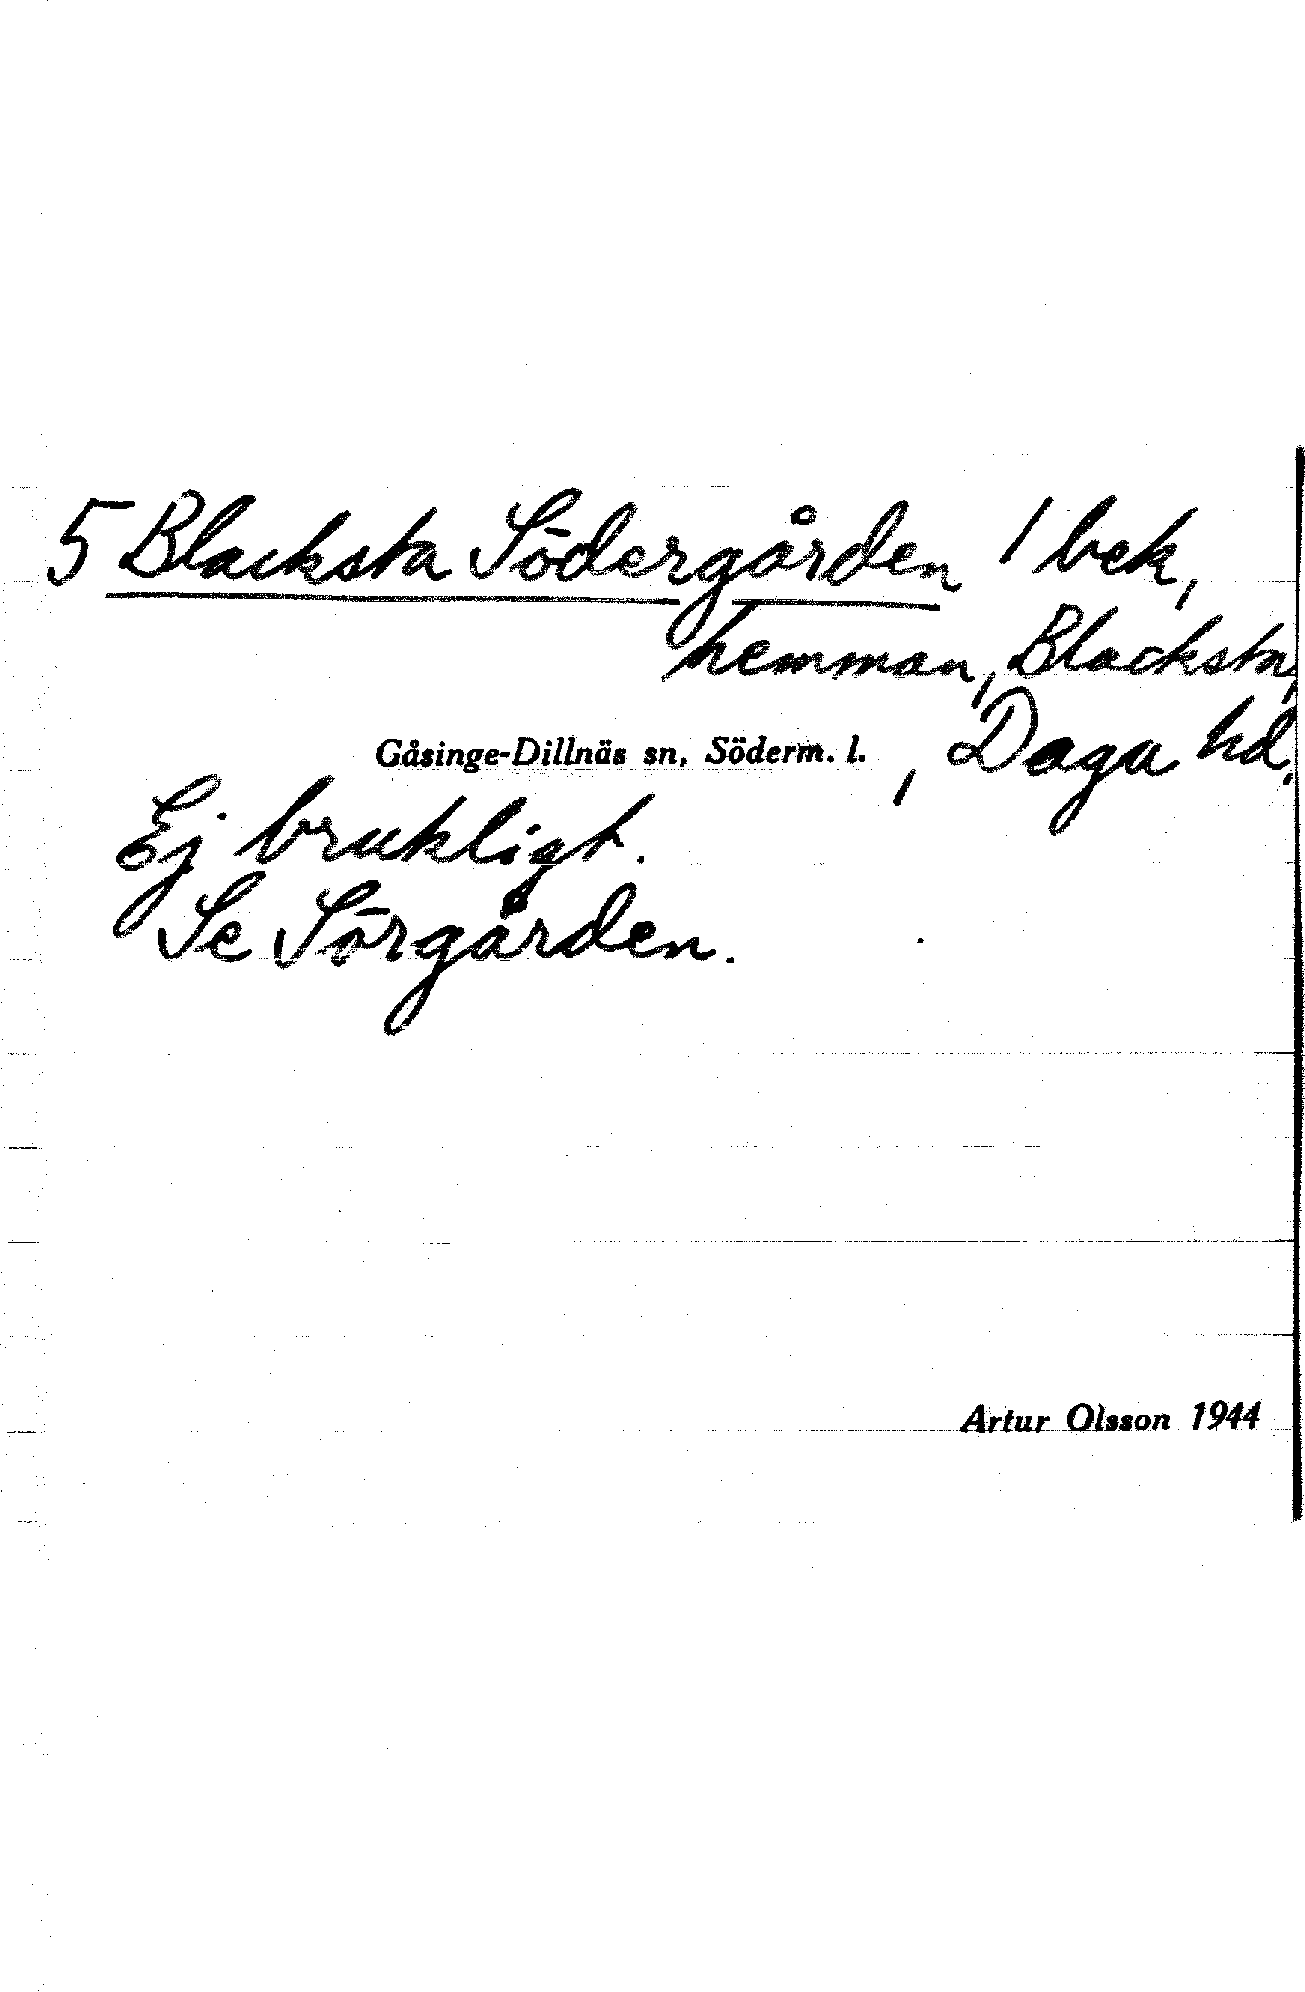 5 Blacksta Södergården 1 bek,
hemman, Blacksta,
Gåsinge-Dillnäs sn, Söderm. l. , Daga hd.
Ej brukligt.
Se Sörgården.
Artur Olsson 1944